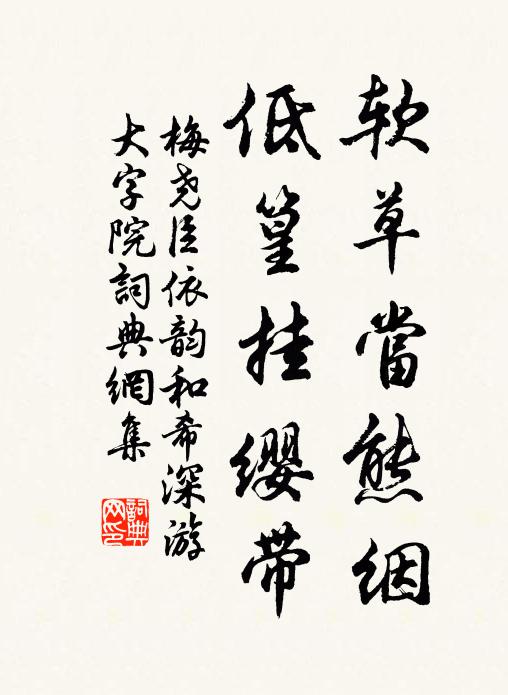 软草當熊絪
低篁挂缨带
梅尧臣依韵和希深游
大字院詞典網集
詞典网印